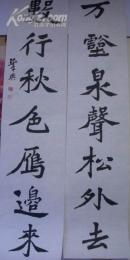 万壑泉聲松外去
數行秋色雁邊来